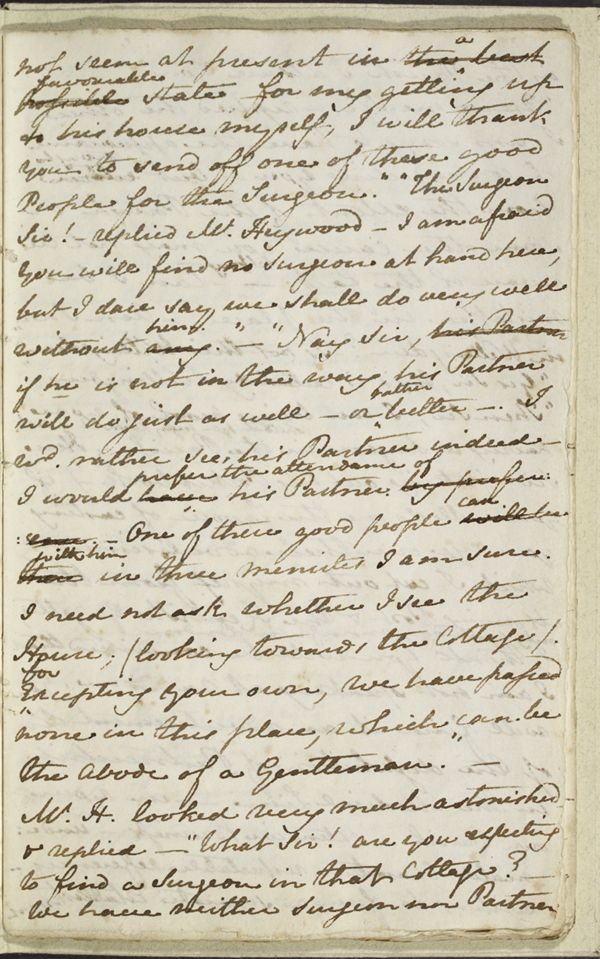 not seem at present in the best a
favourable
possible state for my getting up
to his house myself, I will thank
you to send off one of these good
People for the Surgeon." "The Surgeon
Sir! - replied Mr. Heywood - I am afraid
you will find no surgeon at hand here,
but I dare say we shall do very well
him
without any." - "Nay Sir, his Partner
if he is not in the way, his Partner
rather
will do just as well - or better -. I
wd. rather see his Partner indeed -
prefer the attendance of
I would have his Partner. by prefer:
can
:ence. - One of these good people will be
with him
there in three minutes I am sure.
I need not ask whether I see the
House; (looking towards the Cottage).
for
Excepting your own, we have passed
none in this place, which can be
the abode of a Gentleman." -
Mr. H. looked very much astonished -
& replied - "What Sir! are you expecting
to find a Surgeon in that Cottage? -
We have neither Surgeon nor Partner